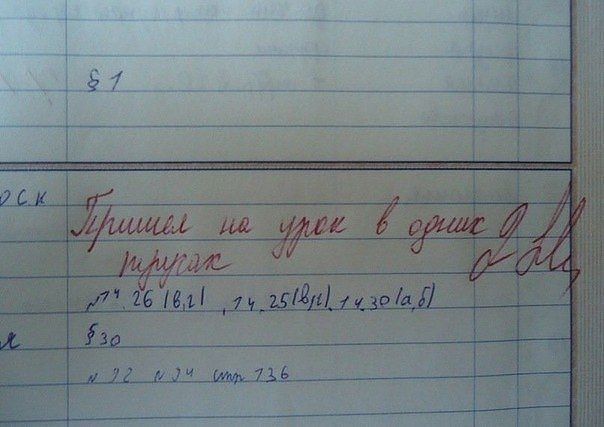 § 1
Пришел на урок в одних
трусах 2
№14.26 (в,г), 14.25(в,г), 14.30(а,б)
§30
№ 32 № 34 стр 136